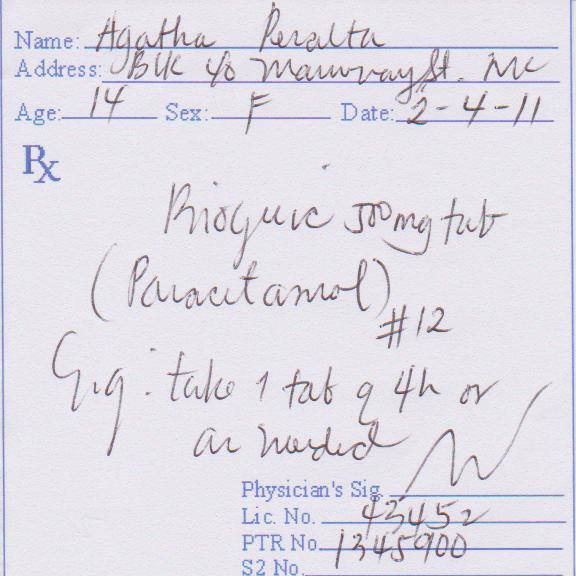 Name: Agatha Peralta
Address: Blk 40 St.
Age: 14 Sex: F Date: 2-4-11
Rx
Biogesic 500mg tab
(Paracetamol)
#12
Sig: take 1 tab q 4h or
as needed
Physician's Sig.
Lic. No. 43452
PTR No. 1345900
S2 No.